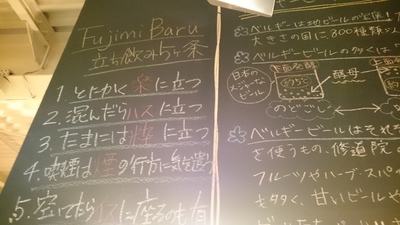 Fujimi Baru
立ち飲み5ヶ条
1. とにかく楽に立つ
2. 混んだらハスに立つ
3. たまには役に立つ
4. 喫煙は煙の行方に気を遣う
5. 空いてたらイスに座るのも有
ベルギーは地ビールの宝庫!
大きさの国に800種類以
ベルギービールの多くは
日本の
メジャーな
ビール
酵母
のどごし
ベルギービールはそれぞ
を使うもの、修道院の
フルーツやハーブ・スパ
多く、甘いビールや